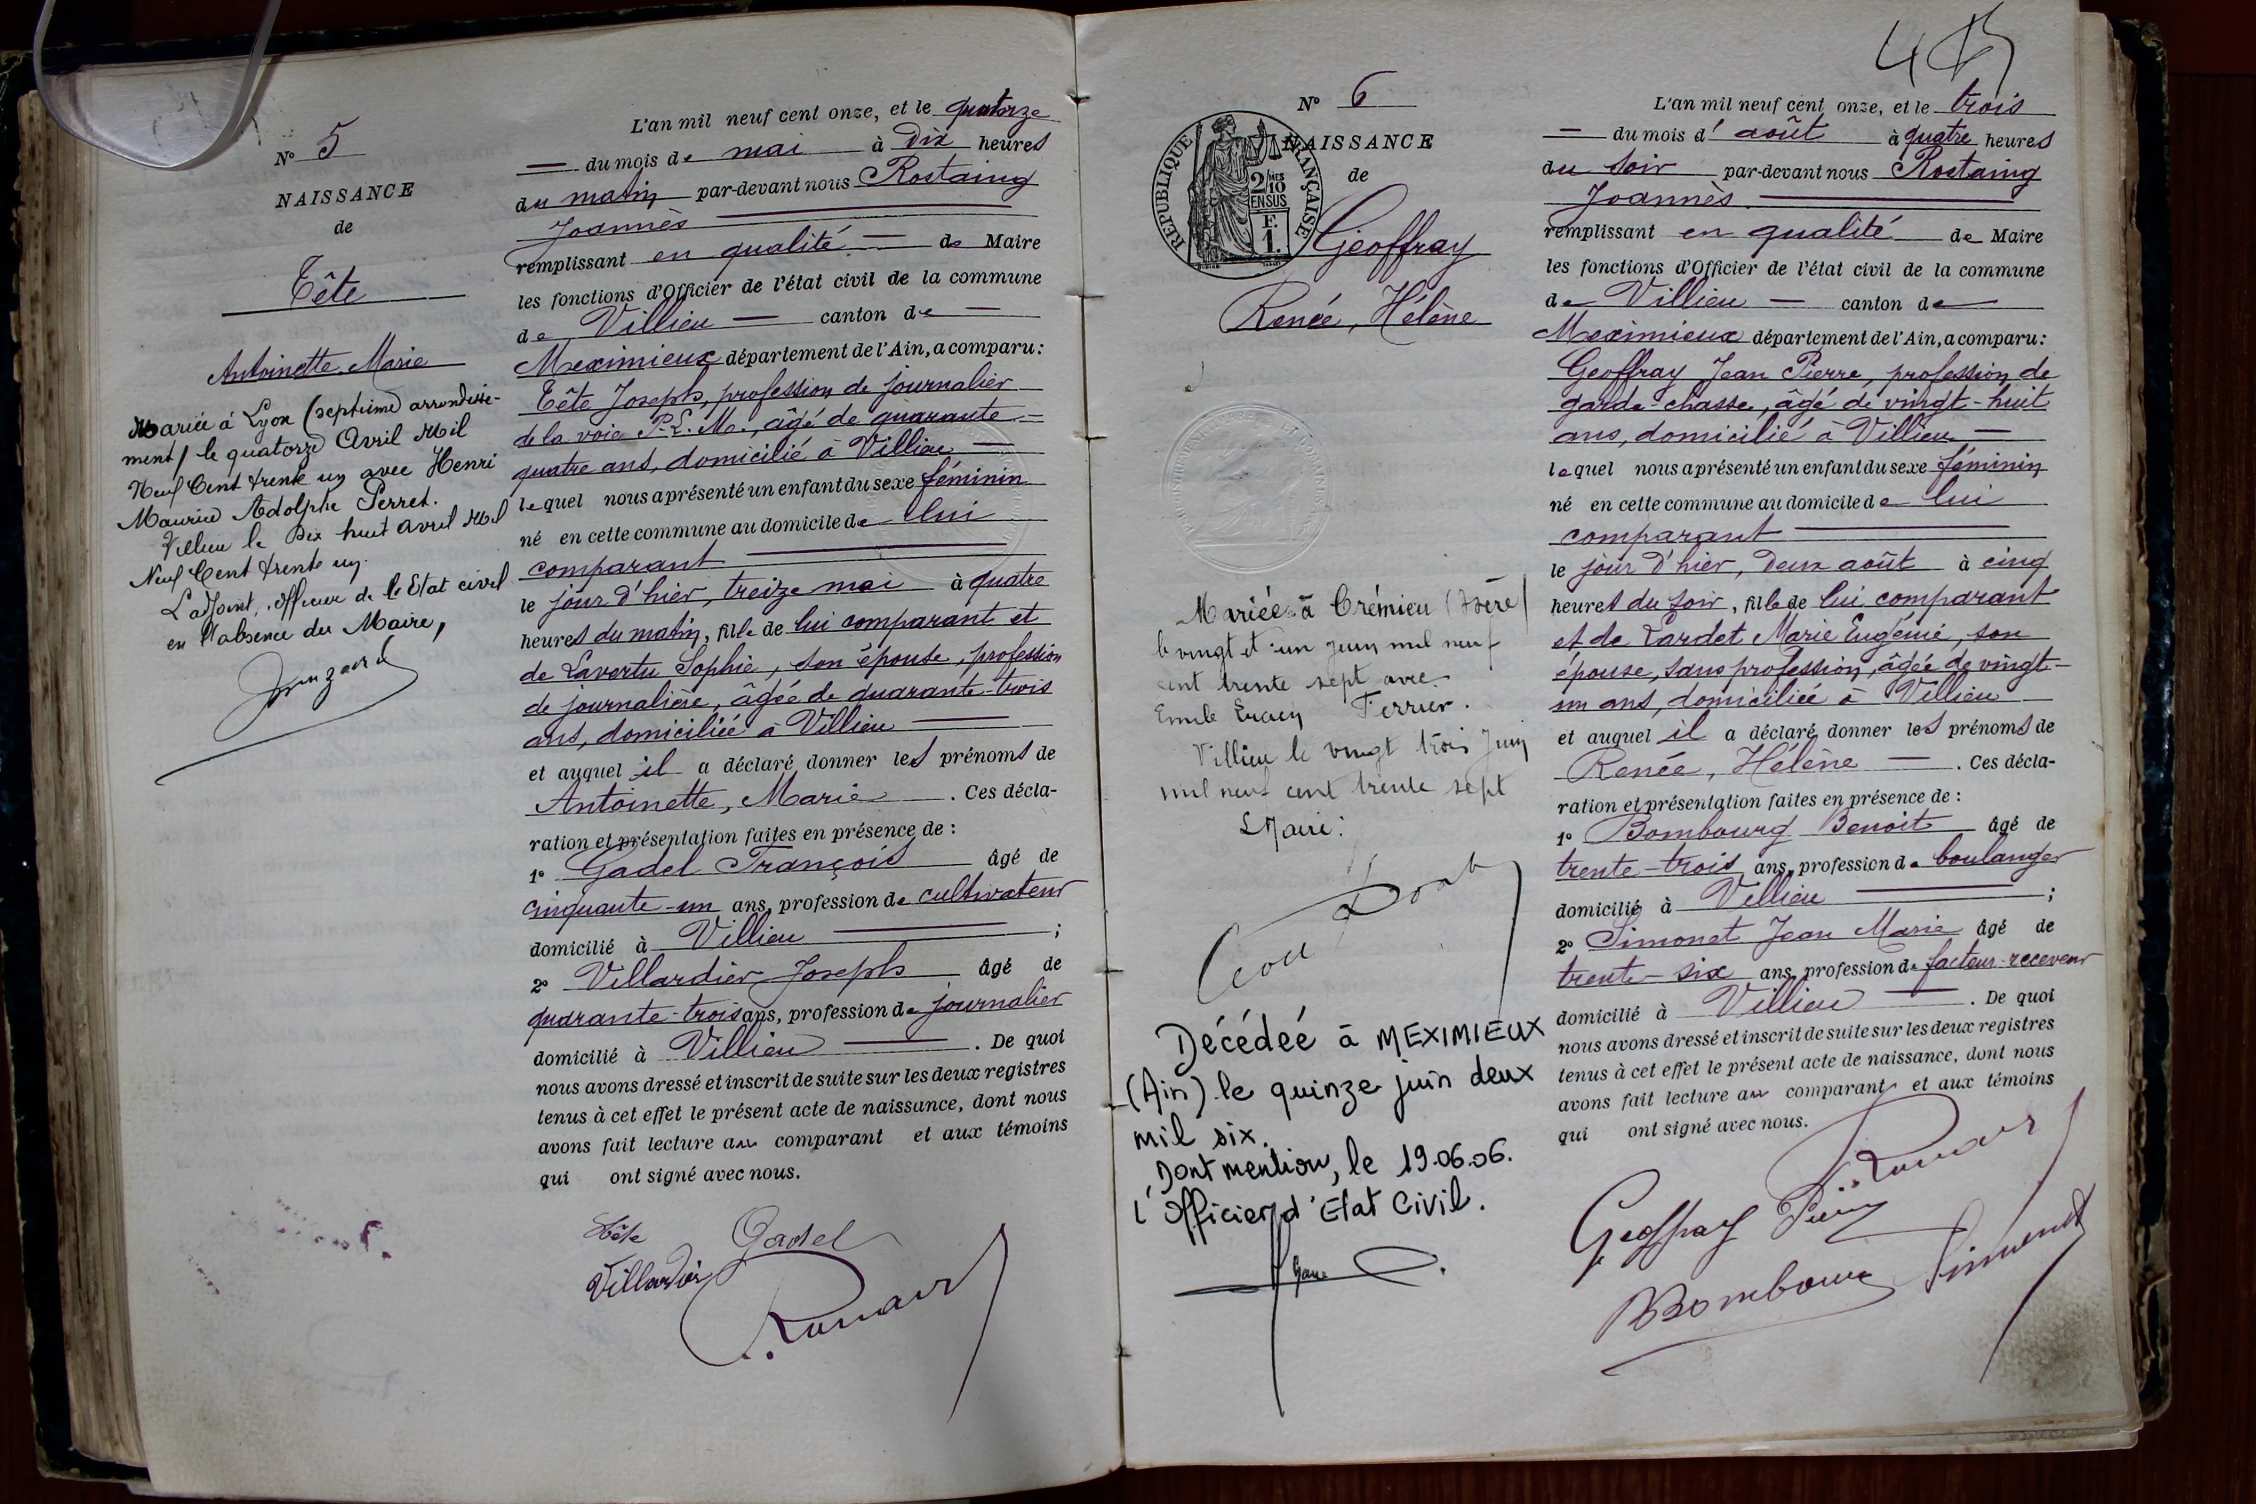 N° 5
NAISSANCE
de
Tête
Antoinette Marie
Mariée à Lyon (septième arrondisse-
ment) le quatorze Avril Mil
Neuf Cent trente un avec Henri
Maurice Adolphe Perret.
Villieu le Dix huit avril Mil
Neuf Cent trente un.
L'adjoint, officier de l'Etat civil
en l'absence du Maire,
L'an mil neuf cent onze, et le quatorze
— du mois de mai à dix heures
du matin par-devant nous Rostaing
Joannès
remplissant en qualité — de Maire
les fonctions d'Officier de l'état civil de la commune
de Villieu — canton de —
Meximieux département de l'Ain, a comparu:
Tête Joseph, profession de journalier
de la voie P.L.M., âgé de quarante =
quatre ans, domicilié à Villieu —
lequel nous a présenté un enfant du sexe féminin
né en cette commune au domicile de lui
comparant
le jour d'hier, treize mai à quatre
heures du matin, fille de lui comparant et
de Lavertu Sophie, son épouse, profession
de journalière, âgée de quarante-trois
ans, domiciliée à Villieu —
et auquel il a déclaré donner les prénoms de
Antoinette, Marie . Ces décla-
ration et présentation faites en présence de :
1° Gadel François âgé de
cinquante-un ans, profession de cultivateur
domicilié à Villieu ;
2° Villardier Joseph âgé de
quarante-trois ans, profession de journalier
domicilié à Villieu — . De quoi
nous avons dressé et inscrit de suite sur les deux registres
tenus à cet effet le présent acte de naissance, dont nous
avons fait lecture au comparant et aux témoins
qui ont signé avec nous.
Tête Gadel
Villardier
N° 6
NAISSANCE
de
REPUBLIQUE FRANÇAISE
2/10 MES
EN SUS
F.
1.
Geoffray
Renée, Hélène
Mariée à Crémieu (Isère)
le vingt et un juin mil neuf
cent trente sept avec
Emile Ferrier.
Villieu le vingt trois Juin
mil neuf cent trente sept
L Maire:
Décédeé à MEXIMIEUX
(Ain) le quinze juin deux
mil six.
Dont mention, le 19.06.06.
L'officier d'Etat Civil.
L'an mil neuf cent onze, et le trois
— du mois d'août à quatre heures
du soir par-devant nous Rostaing
Joannès.
remplissant en qualité de Maire
les fonctions d'Officier de l'état civil de la commune
de Villieu — canton de —
Meximieux département de l'Ain, a comparu:
Geoffray Jean Pierre, profession de
garde-chasse, âgé de vingt-huit
ans, domicilié à Villieu —
lequel nous a présenté un enfant du sexe féminin
né en cette commune au domicile de lui
comparant
le jour d'hier, deux août à cinq
heures du soir, fille de lui comparant
et de Lardet Marie Eugénie, son
épouse, sans profession, âgée de vingt-
un ans, domiciliée à Villieu
et auquel il a déclaré donner les prénoms de
Renée, Hélène — . Ces décla-
ration et présentation faites en présence de :
1° Bombourg Benoit âgé de
trente-trois ans, profession de boulanger
domicilié à Villieu ;
2° Simonet Jean Marie âgé de
trente-six ans, profession de facteur-receveur
domicilié à Villieu — . De quoi
nous avons dressé et inscrit de suite sur les deux registres
tenus à cet effet le présent acte de naissance, dont nous
avons fait lecture au comparant et aux témoins
qui ont signé avec nous.
Geoffray Pierre
Bombourg Simonet